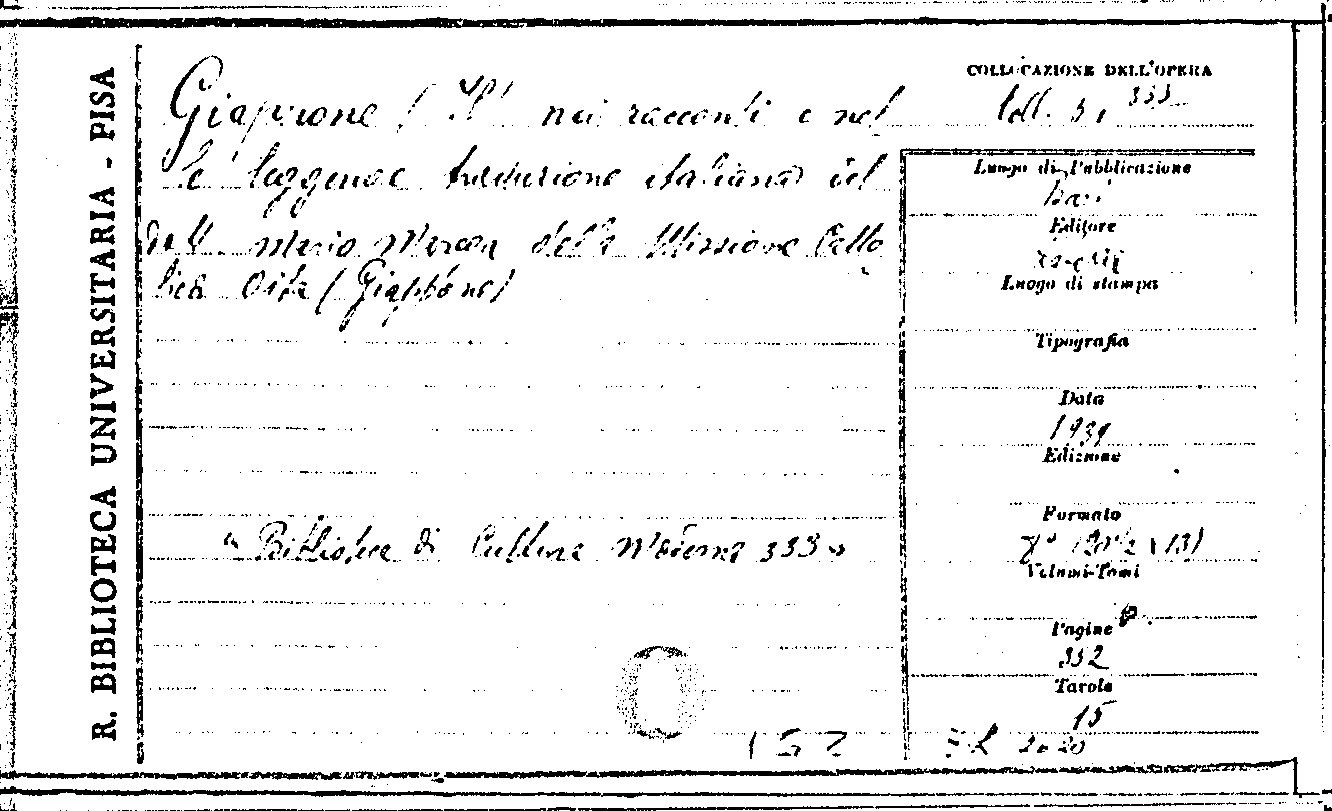 R. BIBLIOTECA UNIVERSITARIA - PISA
Giappone (Il) nei racconti e nel
le leggende traduzione italiana del
dott. Mario Marega della Missione Catto
lica Oita (Giappone)
« Biblioteca di Cultura Moderna 333 »
152
COLLOCAZIONE DELL'OPERA
Coll. 31 333
Luogo di Pubblicazione
Bari
Editore
Laterza
Luogo di stampa
Tipografia
Data
1939
Edizione
Formato
8° (20½ x 13)
Volumi-Tomi
Pagine
332
Tavole
15